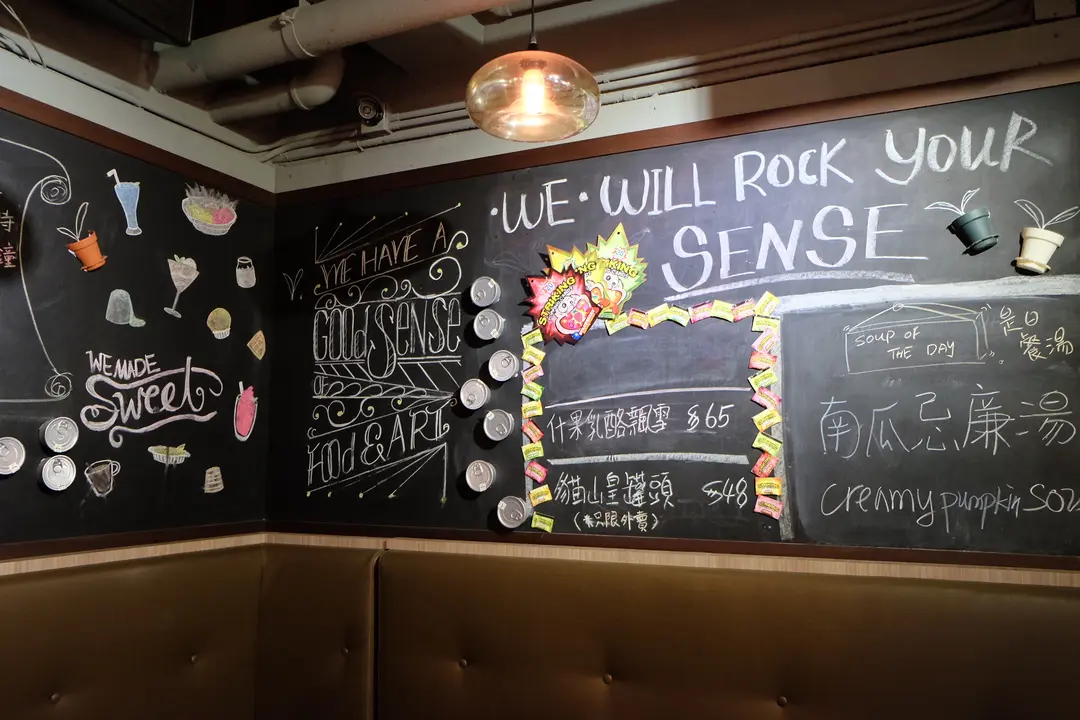 WE MADE
Sweet
WE HAVE A
GOOD SENSE
OF
FOOD & ART
·WE·WILL ROCK YOUR
SENSE
STRIKING
什果乳酪飄雪 $65
貓山皇罐頭 $48
(*只限外賣)
SOUP OF
THE DAY
是日
餐湯
南瓜忌廉湯
creamy pumpkin sou